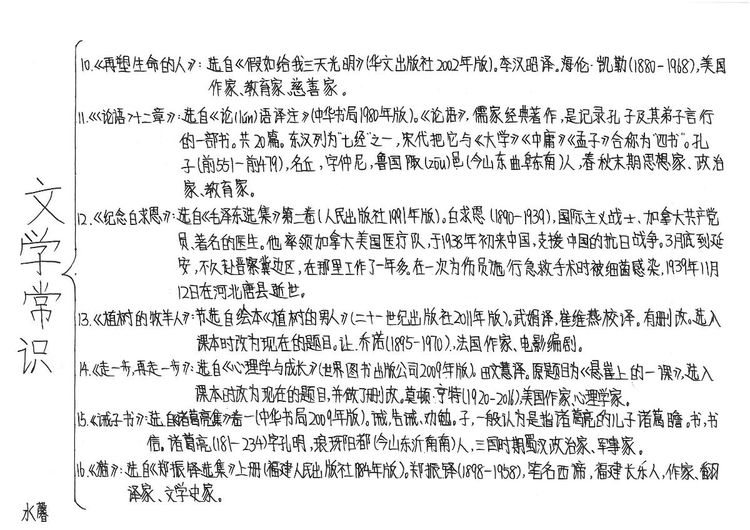 文学常识
10.《再塑生命的人》:选自《假如给我三天光明》(华文出版社2002年版)。李汉昭译。海伦·凯勒(1880-1968),美国
作家、教育家、慈善家。
11.《<论语>十二章》:选自《论(lún)语译注》(中华书局1980年版)。《论语》,儒家经典著作,是记录孔子及其弟子言行
的一部书。共20篇。东汉列为"七经"之一,宋代把它与《大学》《中庸》《孟子》合称为"四书"。孔
子(前551-前479),名丘,字仲尼,鲁国陬(zōu)邑(今山东曲阜东南)人,春秋末期思想家、政治
家、教育家。
12.《纪念白求恩》:选自《毛泽东选集》第二卷(人民出版社1991年版)。白求恩(1890-1939),国际主义战士、加拿大共产党
员、著名的医生。他率领加拿大美国医疗队,于1938年初来中国,支援中国的抗日战争。3月底到延
安,不久赴晋察冀边区,在那里工作了一年多。在一次为伤员施行急救手术时被细菌感染,1939年11月
12日在河北唐县逝世。
13.《植树的牧羊人》:节选自绘本《植树的男人》(二十一世纪出版社2011年版)。武娟译,崔维燕校译。有删改。选入
课本时改为现在的题目。让·乔诺(1895-1970),法国作家、电影编剧。
14.《走一步,再走一步》:选自《心理学与成长》(世界图书出版公司2009年版)。原题目为《悬崖上的一课》,选入
课本时改为现在的题目,并做了删改。莫顿·亨特(1920-2016),美国作家,心理学家。
15.《诫子书》:选自《诸葛亮集》卷一(中华书局2009年版)。诫,告诫、劝勉。子,一般认为是指诸葛亮的儿子诸葛瞻。书,书
信。诸葛亮(181-234)字孔明,琅琊阳都(今山东沂南南)人,三国时期蜀汉政治家、军事家。
16.《猫》:选自《郑振铎选集》上册(福建人民出版社1984年版)。郑振铎(1898-1958),笔名西谛,福建长乐人,作家、翻
译家、文学史家。
水馨